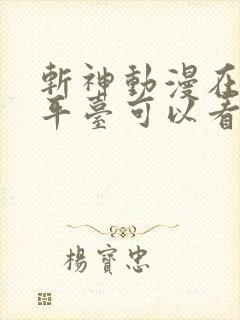 斬神動漫在
平臺可以看
楊寶忠